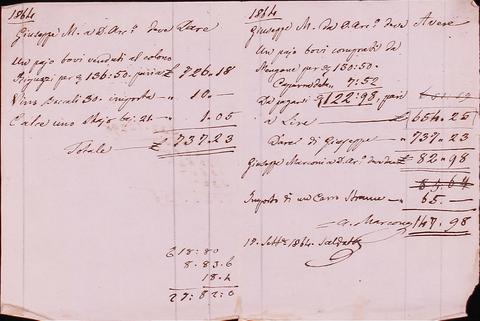 1864
Giuseppe M. a D. Arc.e deve Dare
Un pajo bovi venduti al colono
per 136:50. pari a £ 726.18
Vino Boccali 30. importa - " 10.-
Calce uno Stajo bc: 21 - " 1.05
Totale - £ 737.23
618:80
8.83.6
18.4
27:82:0
1864
Giuseppe M. da D. Arc.e deve Avere
Un pajo bovi comprati da
per 150:50.
7:52
Da pagarsi 122:98, pari
a Lire £ 654.25
Dare di Giuseppe - " 737.23
Giuseppe Marconi a D. Arc. deve £ 82.98
83.64
Importo di un Carro Strame - " 65.-
a Marconi 147.98
18. Sett.e 1864. Saldato